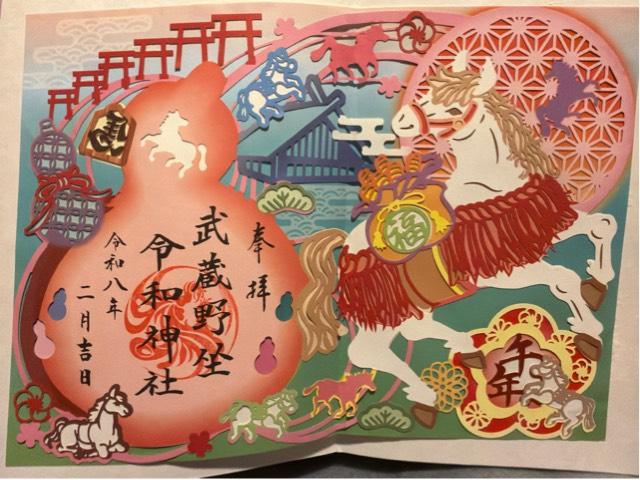 奉拝
武蔵野坐
令和神社
令和八年
二月吉日
福
午年